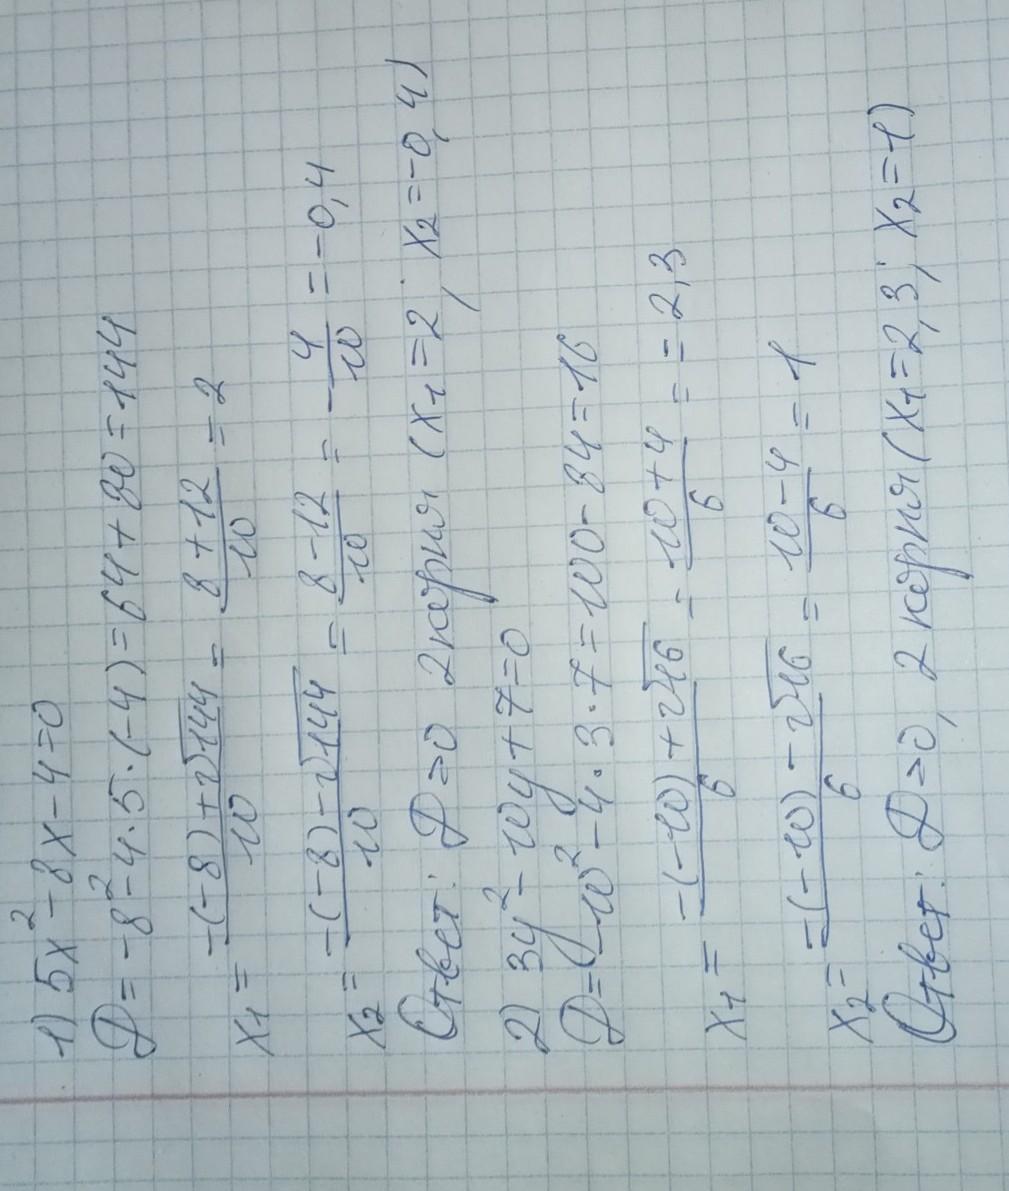 1) 5x² - 8x - 4 = 0
D = -8² - 4·5·(-4) = 64 + 80 = 144
x₁ = (-(-8) + √144)/10 = (8 + 12)/10 = 2
x₂ = (-(-8) - √144)/10 = (8 - 12)/10 = -4/10 = -0,4
Ответ: D > 0 2 корня (x₁ = 2; x₂ = -0,4)
2) 3y² - 10y + 7 = 0
D = -10² - 4·3·7 = 100 - 84 = 16
x₁ = (-(-10) + √16)/6 = (10 + 4)/6 = = 2,3
x₂ = (-(-10) - √16)/6 = (10 - 4)/6 = 1
Ответ: D > 0, 2 корня (x₁ = 2,3; x₂ = 1)